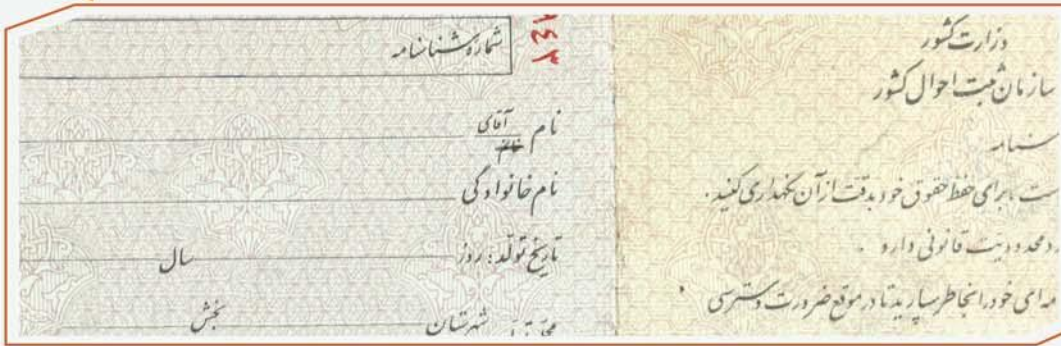 وزارت کشور
سازمان ثبت احوال کشور
سنامه
ست برای حفظ حقوق خود بدقت از آن نگهداری کنید .
محدودیت قانونی دارد .
مه ای خود را بخاطر بسپارید تا در موقع ضرورت دسترسی
شماره شناسنامه
نام آقای
خانم
نام خانوادگی
تاریخ تولد : روز سال
شهرستان بخش